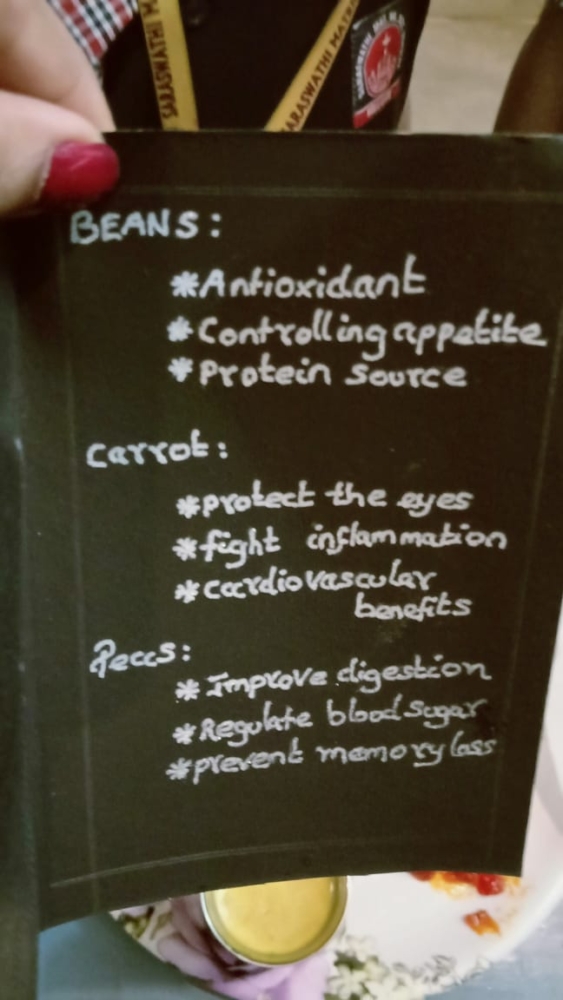 SARASWATHI M
ARASWATHI MATRI
BEANS:
*Antioxidant
*Controlling appetite
*Protein source
Carrot:
*protect the eyes
*fight inflammation
*cardiovascular
benefits
Peas:
*Improve digestion
*Regulate blood sugar
*prevent memory loss